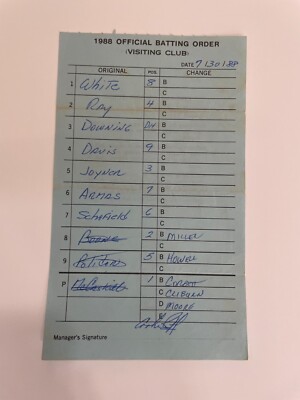 1988 OFFICIAL BATTING ORDER
(VISITING CLUB)
DATE 7/30/88
ORIGINAL POS. CHANGE
1 White 8 B
C
2 Ray 4 B
C
3 Downing DH B
C
4 Davis 9 B
C
5 Joyner 3 B
C
6 Armas 7 B
C
7 Schofield 6 B
C
8 Boone 2 B Miller
C
9 Polidor 5 B Howell
C
P 1 B
C Cliburn
D Moore
E
Manager's Signature